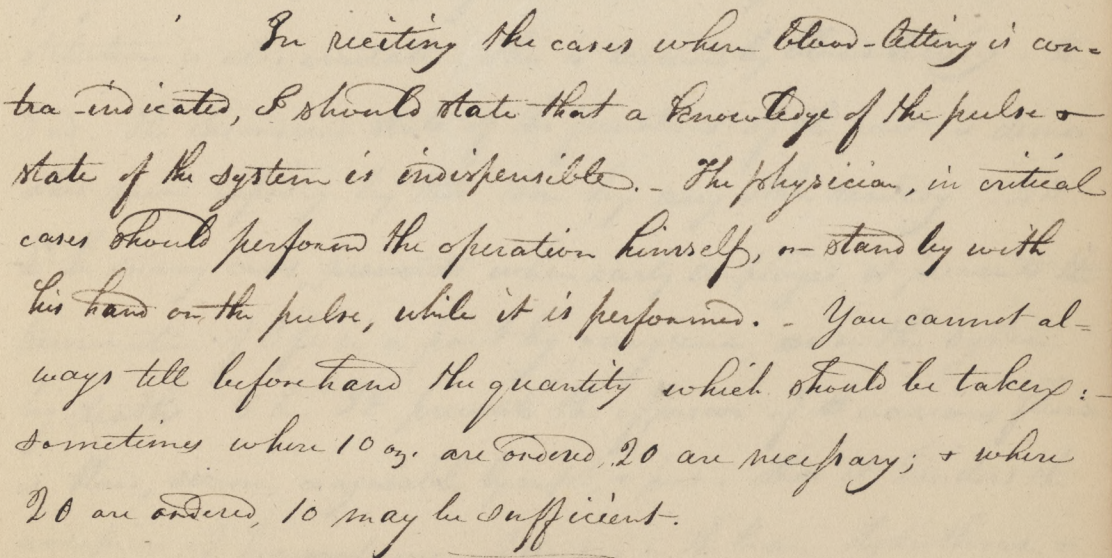 In reciting the cases where blood-letting is con=
tra-indicated, I should state that a knowledge of the pulse &
state of the system is indispensible. - The physician, in critical
cases should perform the operation himself, or stand by with
his hand on the pulse, while it is performed. - You cannot al=
ways tell beforehand the quantity which should be taken: -
sometimes where 10 oz. are ordered, 20 are necessary; & where
20 are ordered, 10 may be sufficient.